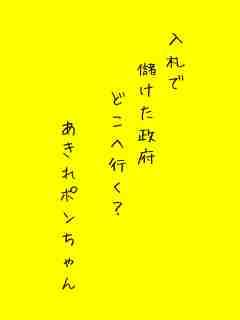 入札で
儲けた政府
どこへ行く?
あきれポンちゃん